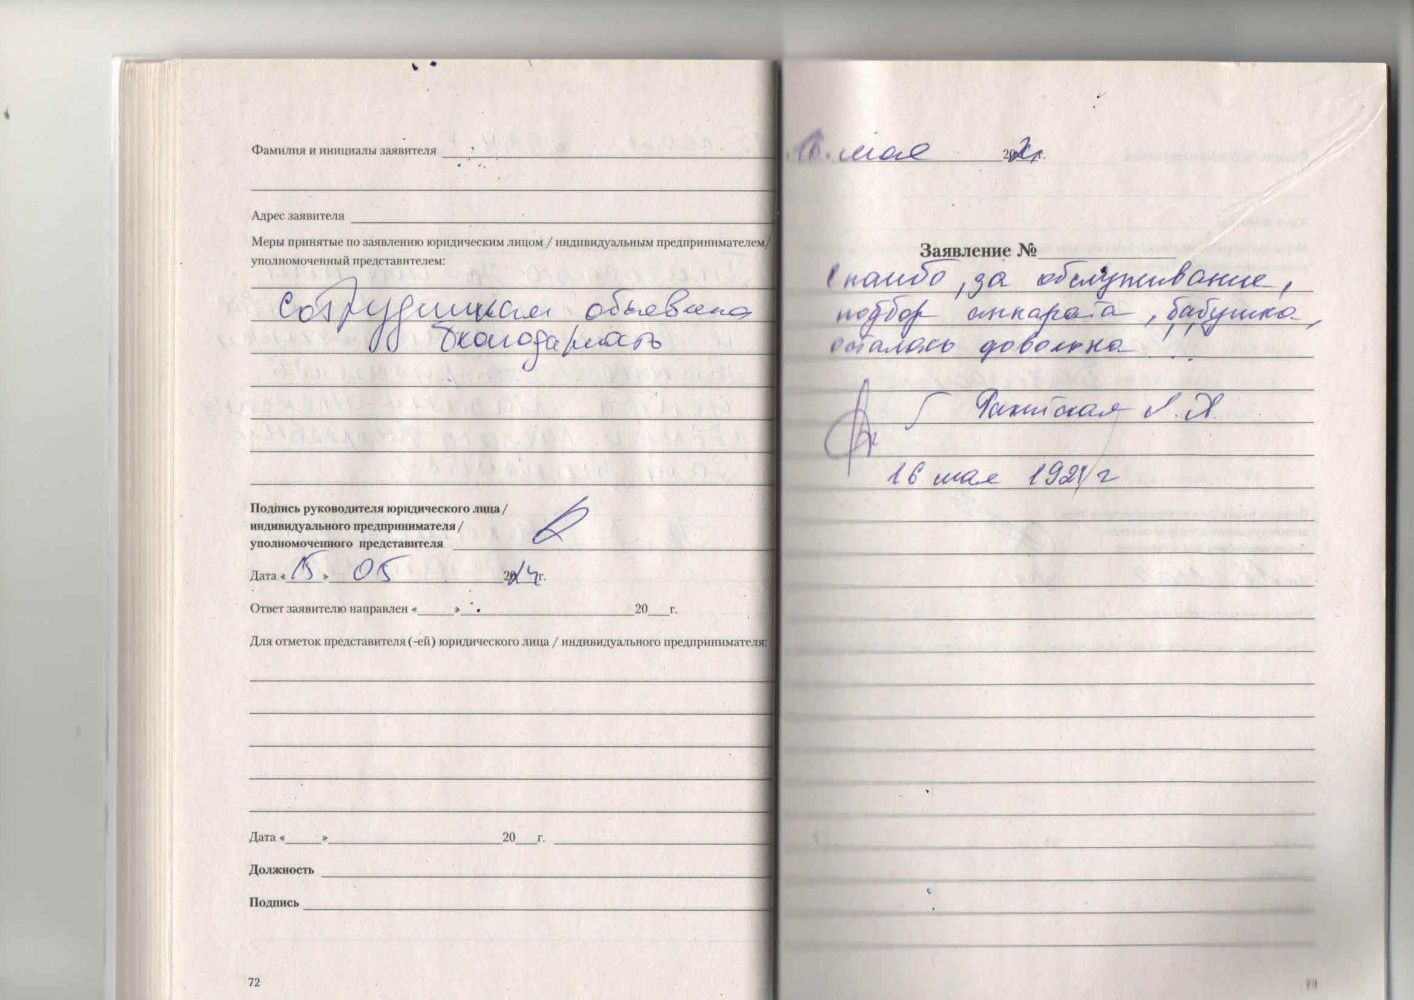 Фамилия и инициалы заявителя
Адрес заявителя
Меры принятые по заявлению юридическим лицом / индивидуальным предпринимателем/
уполномоченный представителем:
сотрудникам объявлена
благодарность
Подпись руководителя юридического лица/
индивидуального предпринимателя/
уполномоченного представителя
Дата «15» 05 2024г.
Ответ заявителю направлен «____» 20__г.
Для отметок представителя (-ей) юридического лица / индивидуального предпринимателя:
Дата «____» 20__г.
Должность
Подпись
72
16. мая 20 г.
Заявление №
Спасибо, за обслуживание,
подбор аппарата, бабушка,
осталась довольна!...
Л. Л.
16 мая 192 г